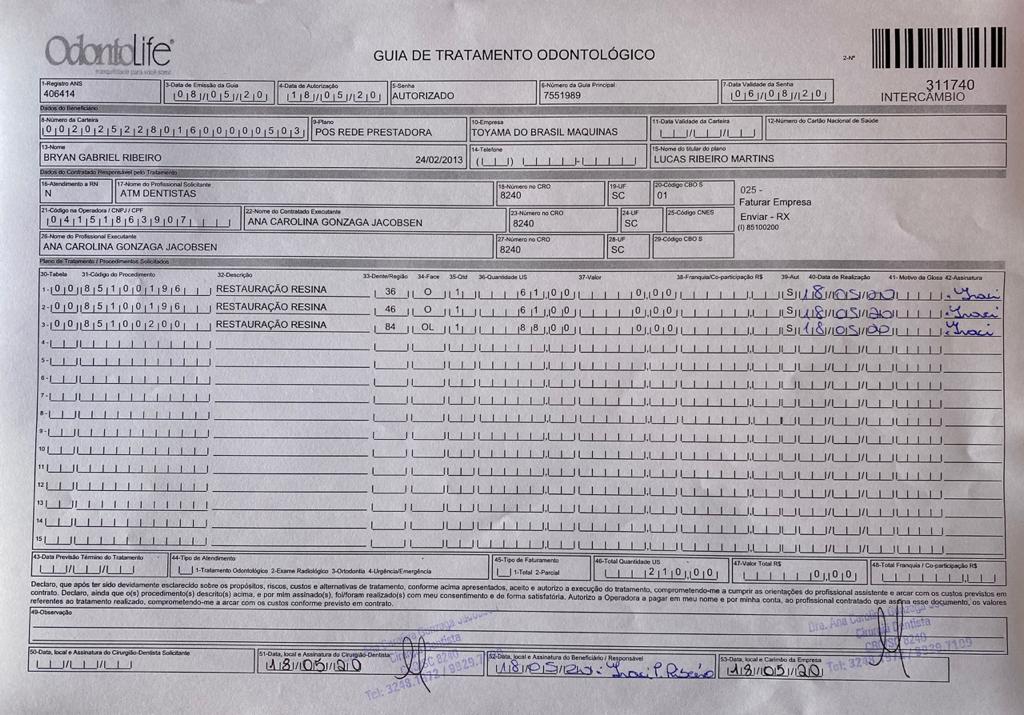 OdontoLife
tranquilidade para você sorrir
GUIA DE TRATAMENTO ODONTOLÓGICO
2-Nº
311740
INTERCÂMBIO
1-Registro ANS 3-Data de Emissão da Guia 4-Data de Autorização 5-Senha 6-Número da Guia Principal 7-Data Validade da Senha
406414 08/05/20 18/05/20 AUTORIZADO 7551989 06/08/20
Dados do Beneficiário
8-Número da Carteira 9-Plano 10-Empresa 11-Data Validade da Carteira 12-Número do Cartão Nacional de Saúde
00202522801600000503 POS REDE PRESTADORA TOYAMA DO BRASIL MAQUINAS
13-Nome 14-Telefone 15-Nome do titular do plano
BRYAN GABRIEL RIBEIRO 24/02/2013 LUCAS RIBEIRO MARTINS
Dados do Contratado Responsável pelo Tratamento
16-Atendimento a RN 17-Nome do Profissional Solicitante 18-Número no CRO 19-UF 20-Código CBO S
N ATM DENTISTAS 8240 SC 01
025 -
Faturar Empresa
Enviar - RX
(I) 85100200
21-Código na Operadora / CNPJ / CPF 22-Nome do Contratado Executante 23-Número no CRO 24-UF 25-Código CNES
04151863907 ANA CAROLINA GONZAGA JACOBSEN 8240 SC
26-Nome do Profissional Executante 27-Número no CRO 28-UF 29-Código CBO S
ANA CAROLINA GONZAGA JACOBSEN 8240 SC
Plano de Tratamento / Procedimentos Solicitados
30-Tabela 31-Código do Procedimento 32-Descrição 33-Dente/Região 34-Face 35-Qtd 36-Quantidade US 37-Valor 38-Franquia/Co-participação R$ 39-Aut 40-Data de Realização 41- Motivo da Glosa 42-Assinatura
1- 00 85100196 RESTAURAÇÃO RESINA 36 O 1 61,00 0,00 S 18/05/20 Iraci
2- 00 85100196 RESTAURAÇÃO RESINA 46 O 1 61,00 0,00 S 18/05/20 Iraci
3- 00 85100200 RESTAURAÇÃO RESINA 84 OL 1 88,00 0,00 S 18/05/20 Iraci
4-
5-
6-
7-
8-
9-
10
11
12
13
14
15
43-Data Previsão Término do Tratamento 44-Tipo de Atendimento 45-Tipo de Faturamento 46-Total Quantidade US 47-Valor Total R$ 48-Total Franquia / Co-participação R$
1-Tratamento Odontológico 2-Exame Radiológico 3-Ortodontia 4-Urgência/Emergência 1-Total 2-Parcial 210,00 0,00
Declaro, que após ter sido devidamente esclarecido sobre os propósitos, riscos, custos e alternativas de tratamento, conforme acima apresentados, aceito e autorizo a execução do tratamento, comprometendo-me a cumprir as orientações do profissional assistente e arcar com os custos previstos em
contrato. Declaro, ainda que o(s) procedimento(s) descrito(s) acima, e por mim assinado(s), foi/foram realizado(s) com meu consentimento e de forma satisfatória. Autorizo a Operadora a pagar em meu nome e por minha conta, ao profissional contratado que assina esse documento, os valores
referentes ao tratamento realizado, comprometendo-me a arcar com os custos conforme previsto em contrato.
49-Observação
50-Data, local e Assinatura do Cirurgião-Dentista Solicitante 51-Data, local e Assinatura do Cirurgião-Dentista 52-Data, local e Assinatura do Beneficiário / Responsável 53-Data, local e Carimbo da Empresa
18/05/20 18/05/20 Iraci P. Ribeiro 18/05/20
Dra. Ana Carolina Gonzaga
Cirurgiã Dentista
CRO/SC 8240